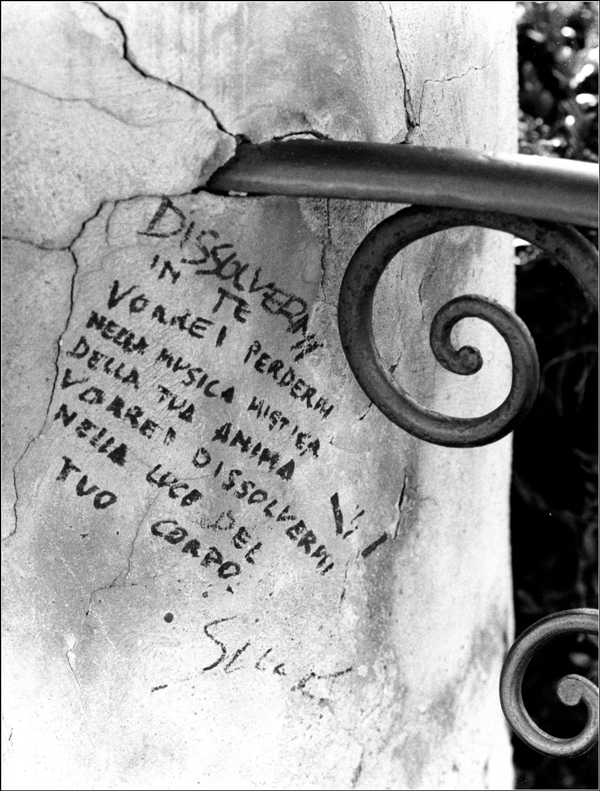 DISSOLVERMI
IN TE
VORREI PERDERMI
NELLA MUSICA MISTICA
DELLA TUA ANIMA
VORREI DISSOLVERMI
NELLA LUCE DEL
TUO CORPO.